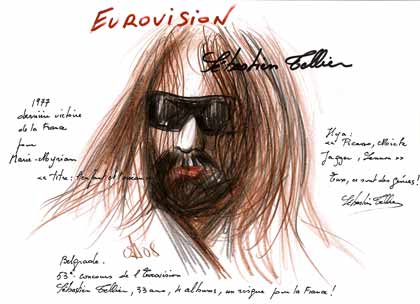 EUROVISION
Sébastien Tellier
1977
dernière victoire
de la France
pour
Marie-Myriam
Titre: l'enfant et
Il y a:
"Picasso,
Jagger, Lennon »
sont des génies!
Sébastien Tellier
08
Belgrade.
53e concours de l'Eurovision
Sébastien Tellier, 33 ans, 4 albums, un risque pour la France!